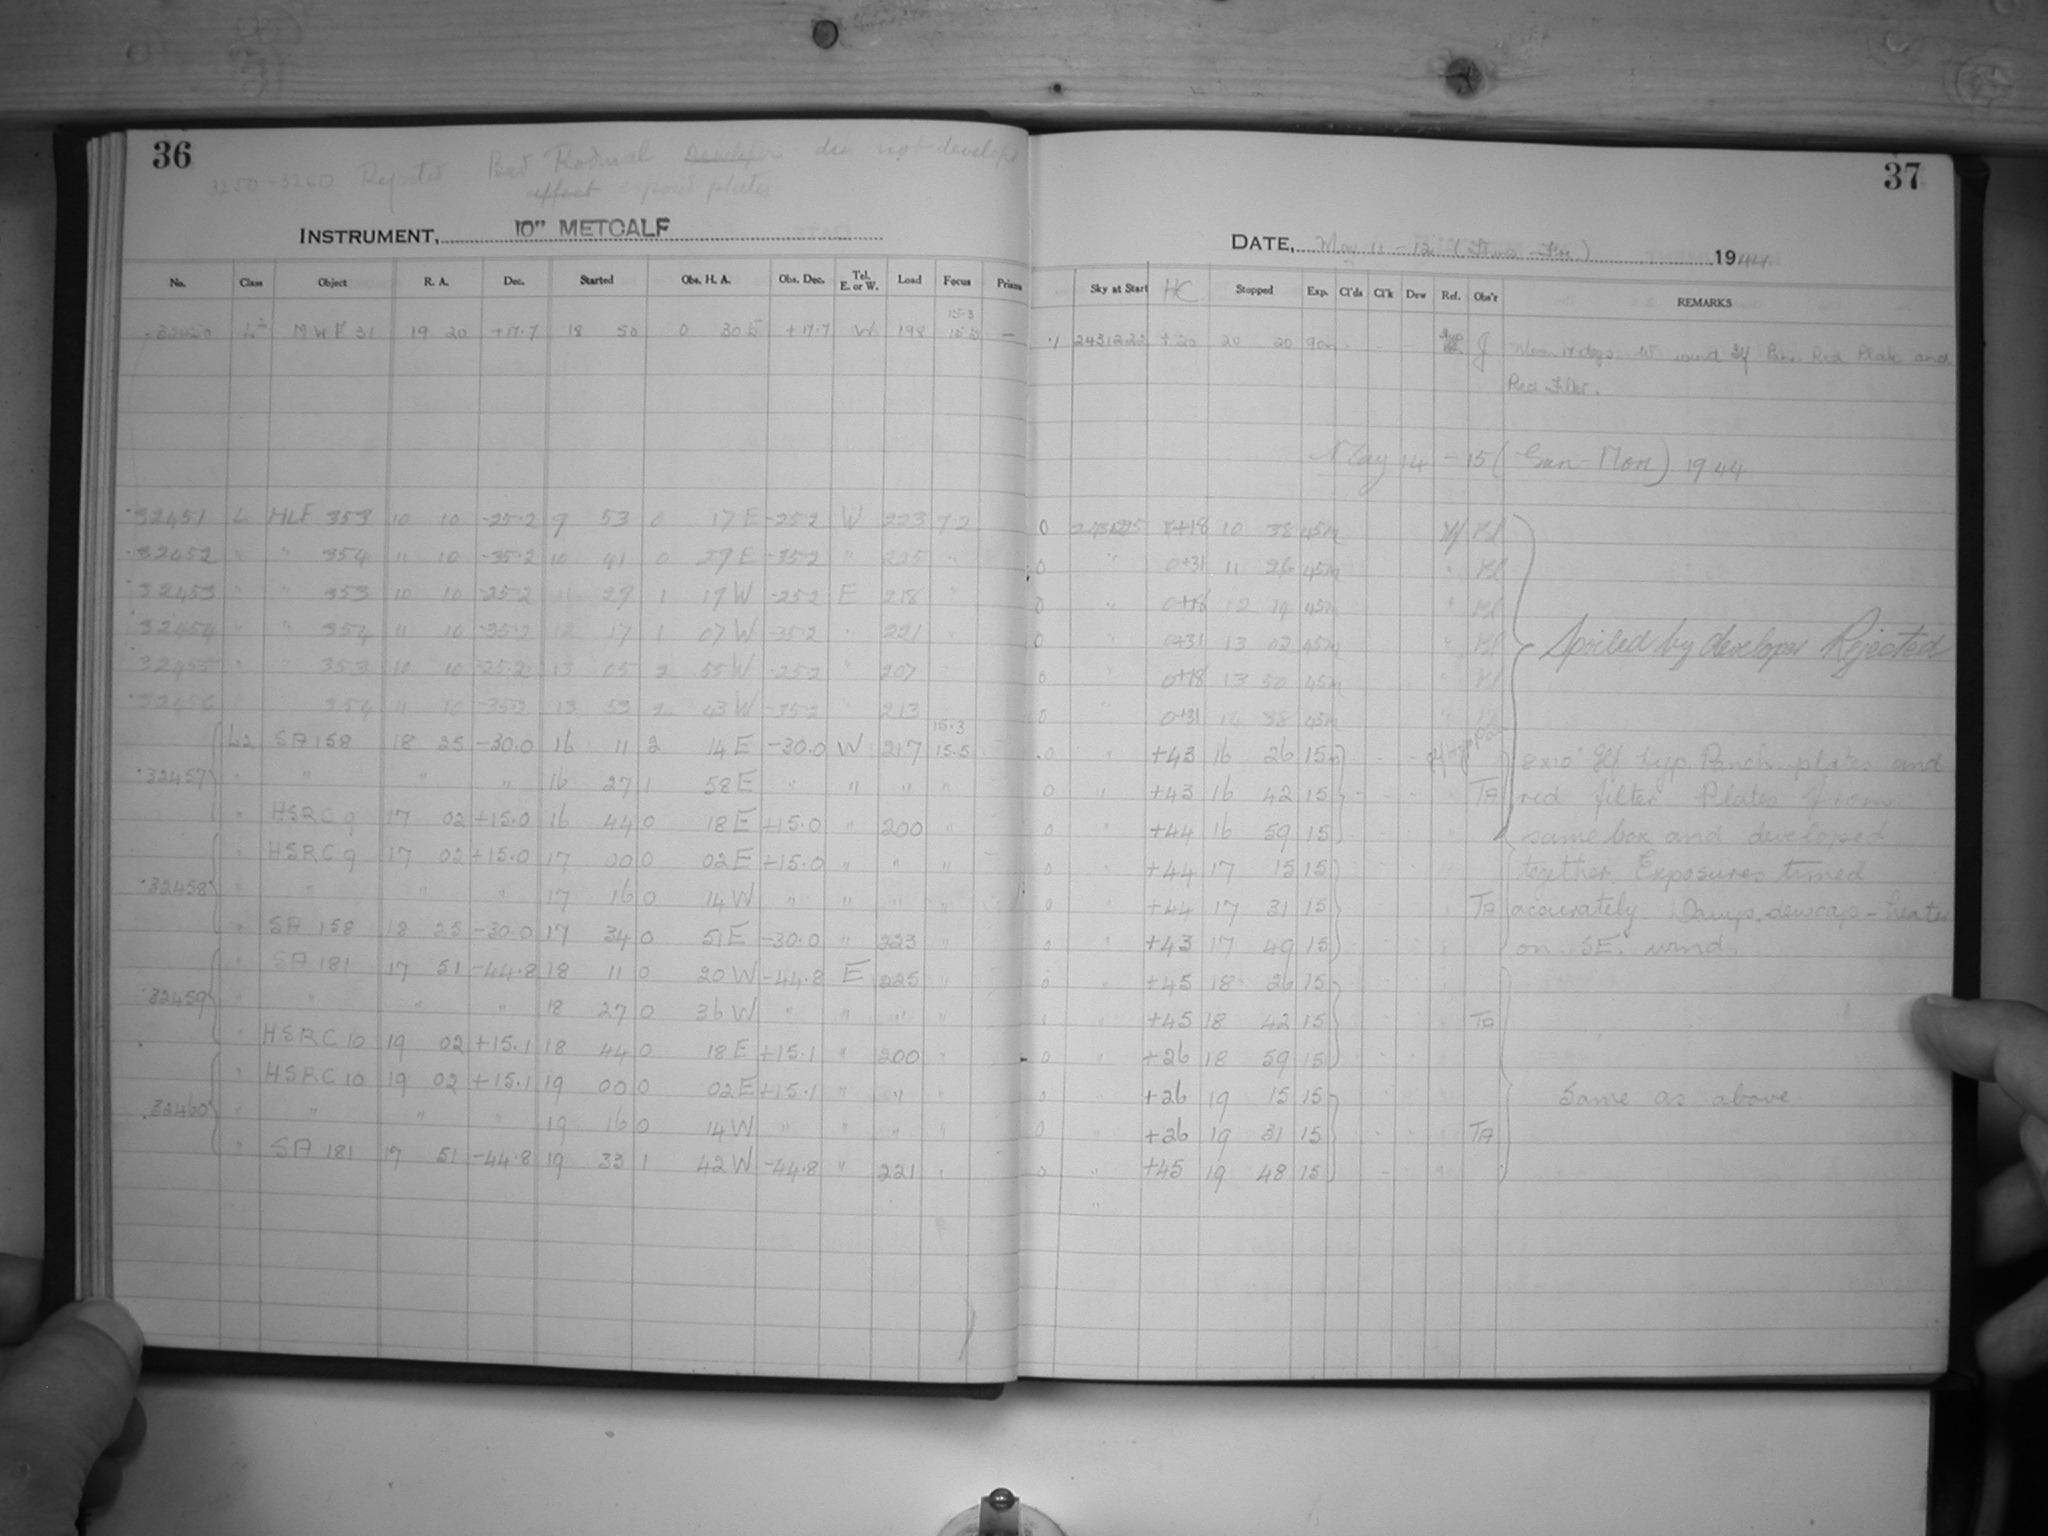 36
3250-3260 Rejected Bad Rodinal Developer did not develop
affect exposed plates
INSTRUMENT, 10" METCALF
No. Class Object R. A. Dec. Started Obs. H. A. Obs. Dec. Tel. E. or W. Load Focus Prism
32450 L2 MWF 31 19 20 +17.7 18 50 0 30 E +17.7 W 198 15.3 15.5 —
32451 L HLF 353 10 10 -25.2 9 53 0 17 E -25.2 W 223 7.2
32452 " " 354 11 10 -35.2 10 41 0 29 E -35.2 " 225 "
32453 " " 353 10 10 -25.2 11 29 1 19 W -25.2 E 218 "
32454 " " 354 11 10 -35.2 12 17 1 07 W -35.2 " 221 "
32455 " 353 10 10 -25.2 13 05 2 55 W -25.2 " 207
32456 " 354 11 10 -35.2 13 53 2 43 W -35.2 " 213
L2 SA 158 18 25 -30.0 16 11 2 14 E -30.0 W 217 15.3 15.5
32457 " " " " 16 27 1 58 E " " " "
" HSRC 9 17 02 +15.0 16 44 0 18 E +15.0 " 200 "
" HSRC 9 17 02 +15.0 17 00 0 02 E +15.0 " " "
32458 " " " " 17 16 0 14 W " " " "
" SA 158 18 25 -30.0 17 34 0 51 E -30.0 " 223 "
" SA 181 17 51 -44.8 18 11 0 20 W -44.8 E 225 "
32459 " " " " 18 27 0 36 W " " " "
HSRC 10 19 02 +15.1 18 44 0 18 E +15.1 " 200 "
" HSRC 10 19 02 +15.1 19 00 0 02 E +15.1 " " "
32460 " " " " 19 16 0 14 W " " " "
" SA 181 17 51 -44.8 19 33 1 42 W -44.8 " 221 "
37
DATE, May 11-12 (Thurs-Fri) 1944
Sky at Start HC Stopped Exp. Cl'ds Cl'k Dew Ref. Obs'r REMARKS
+20 20 20 90m - - - J Moon 19 days W wind Ilf Pan. Red Plate and
Red Filter.
May 14-15 (Sun-Mon) 1944
0 0+18 10 38 45m Ilf Bl
0 " 0+31 11 26 45m " Bl
0 " 0+18 12 14 45m " Bl
0 " 0+31 13 02 45m " Bl
Spoiled by developer Rejected
0 " 0+18 13 50 45m " Bl
0 " 0+31 14 38 45m "
0 " +43 16 26 15 - - 8x10 Ilf Hyp Panch plates and
0 " +43 16 42 15 - - TA red filter. Plates from
0 " +44 16 59 15 same box and developed
0 " +44 17 15 15 together. Exposures timed
0 " +44 17 31 15 TA accurately. Damp, dewcap-heater
0 " +43 17 49 15 on. SE. wind.
0 " +45 18 26 15
0 " +45 18 42 15 TA
0 " +26 18 59 15
0 " +26 19 15 15 Same as above
0 " +26 19 31 15 TA
0 " +45 19 48 15
"